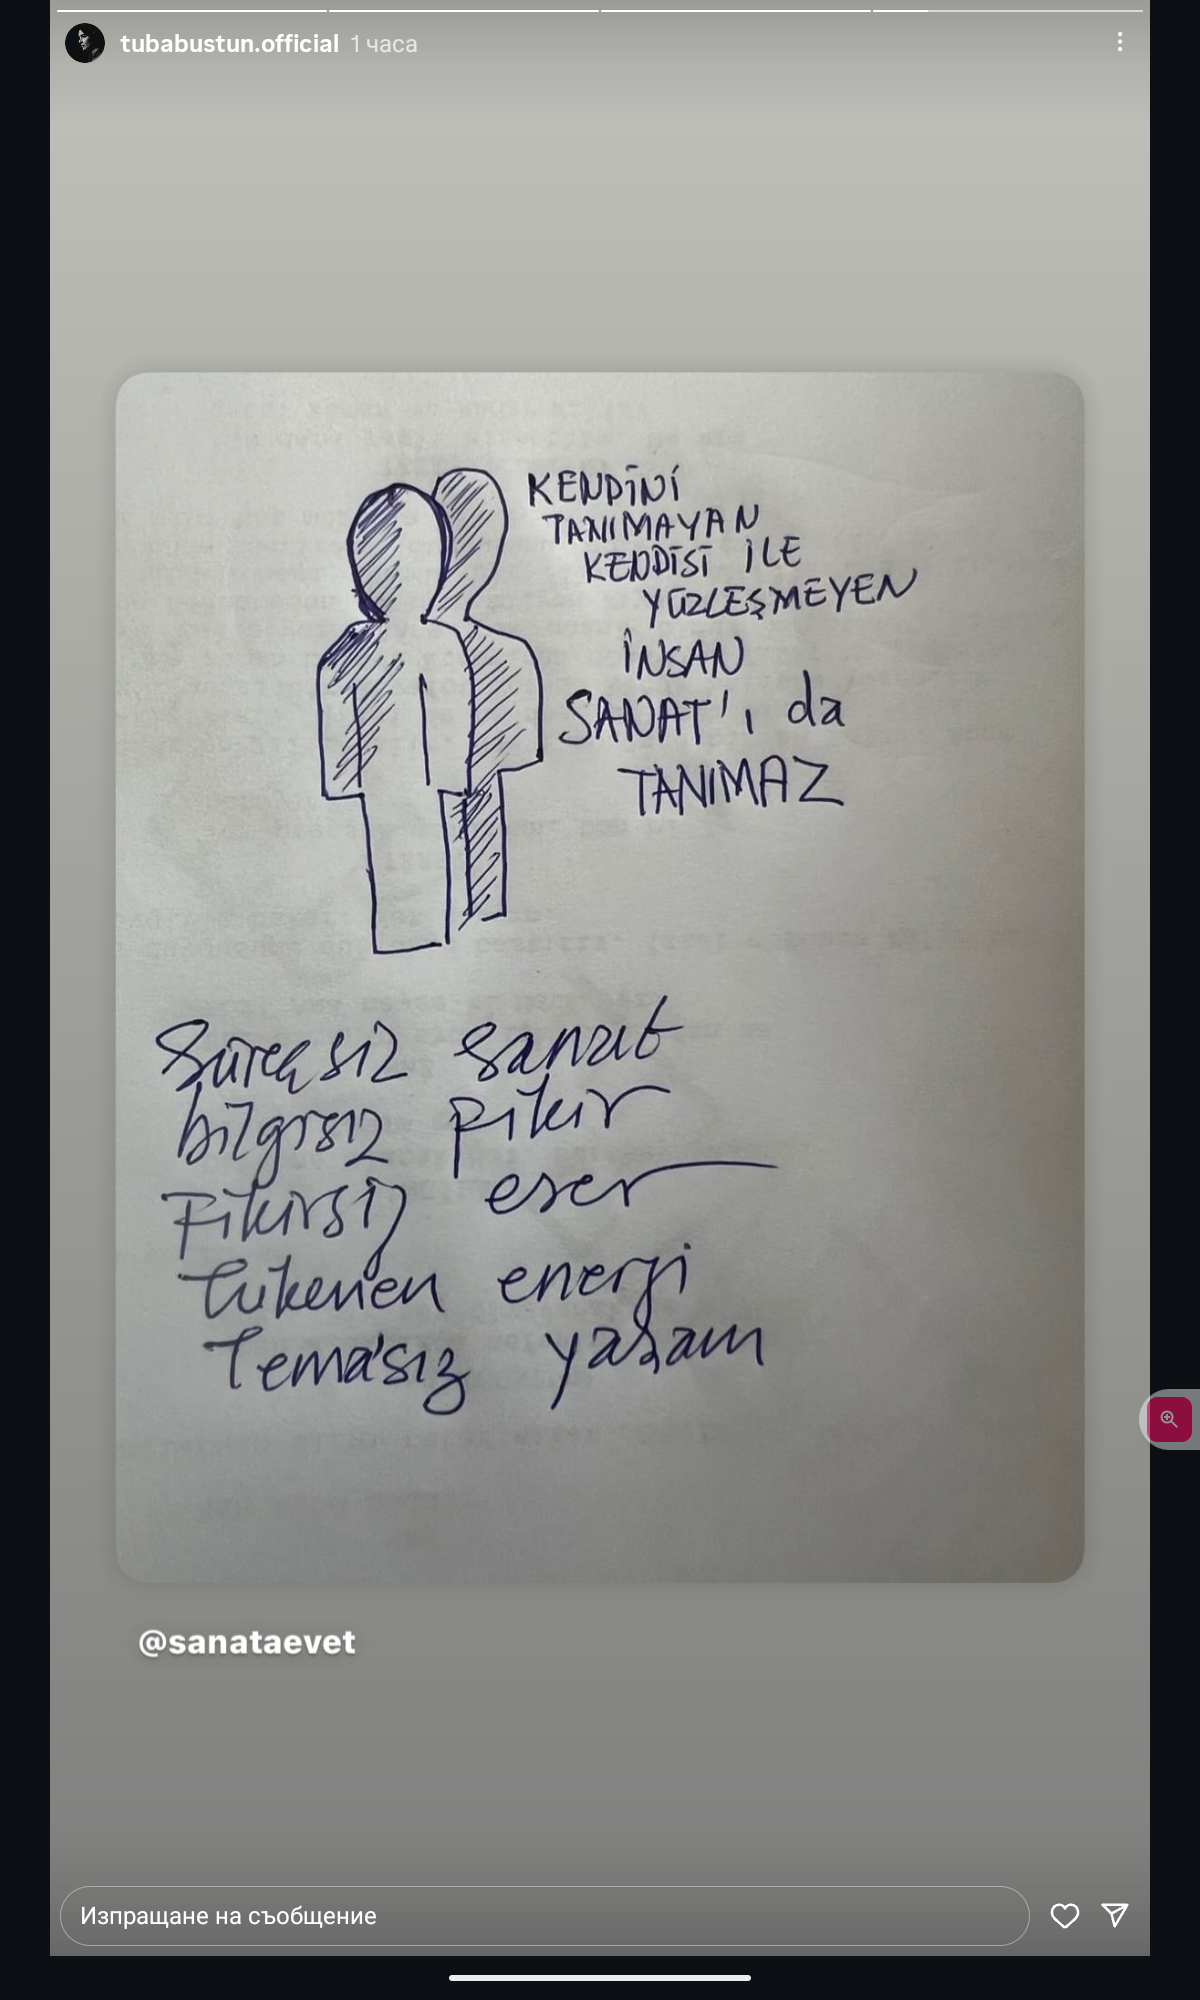 tubabustun.official 1 часа
KENDİNİ
TANIMAYAN
KENDİSİ İLE
YÜZLEŞMEYEN
İNSAN
SANAT'ı da
TANIMAZ
Süreçsiz sanat
bilgisiz fikir
Fikirsiz eser
Tükenen energi
Temasız yaşam
@sanataevet
Изпращане на съобщение